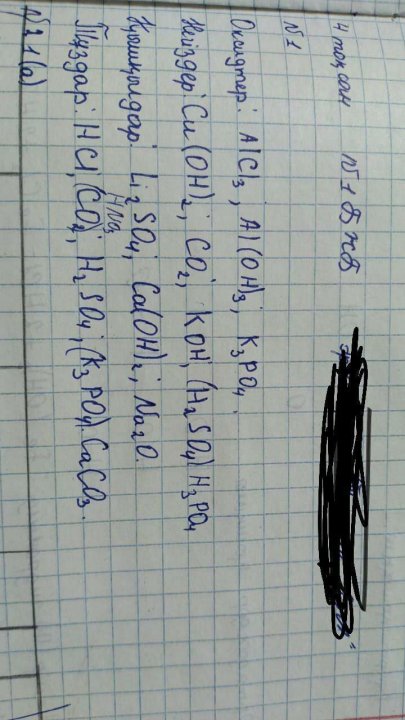 4 тоқсан №1 БЖБ
№1
Оксидтер: AlCl₃, Al(OH)₃; K₃PO₄.
Негіздер: Cu(OH)₂; CO₂; KOH; (H₂SO₄) H₃PO₄
Қышқылдар: Li₂SO₄; HNO₃ Ca(OH)₂; Na₂O.
Тұздар: HCl; (CO₂); H₂SO₄; (K₃PO₄) CaCO₃.
№2 1(а)